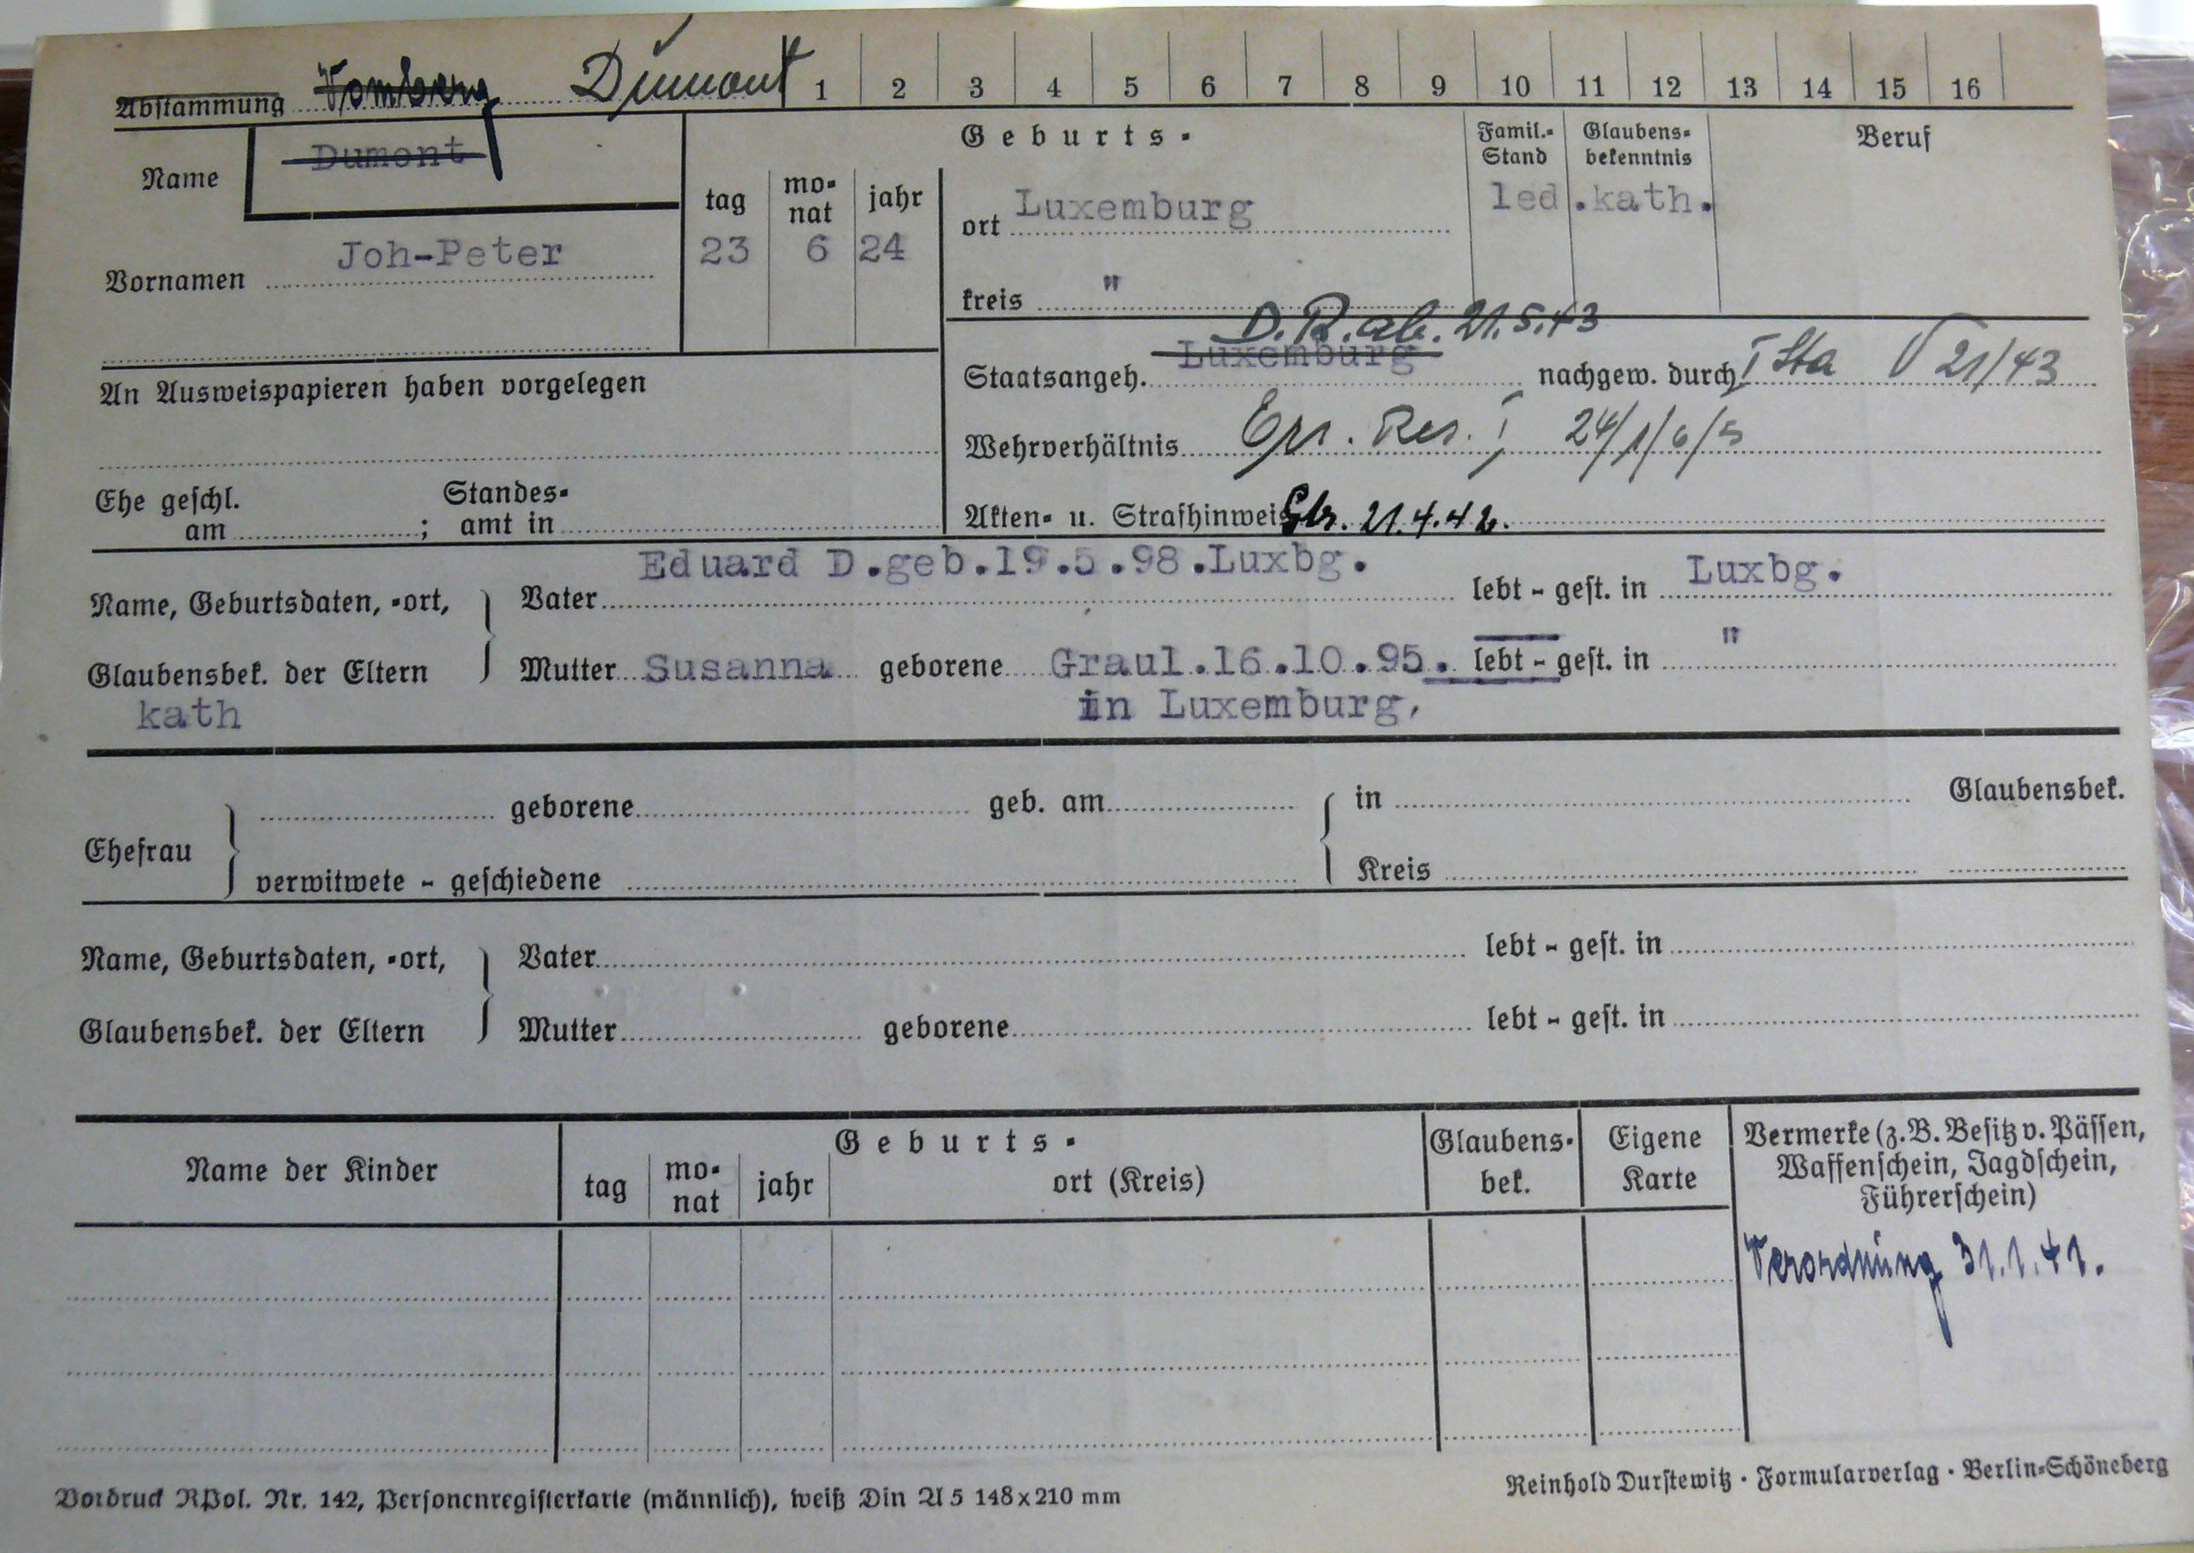 Abstammung Vomberg Dumont 1 2 3 4 5 6 7 8 9 10 11 12 13 14 15 16
Name Dumont
Geburts-
Famil.-Stand
Glaubens-bekenntnis
Beruf
tag mo-nat jahr
ort Luxemburg led.kath.
Vornamen Joh-Peter 23 6 24
kreis "
D.R. ab. 21.5.43
An Ausweispapieren haben vorgelegen
Staatsangeh. Luxemburg nachgew. durch I Sta V 21/43
Wehrverhältnis Ers. Res. I 24/1/6/5
Ehe geschl. am ; Standes-amt in
Akten- u. Strafhinweis 21.4.42.
Eduard D.geb.19.5.98.Luxbg. Luxbg.
Name, Geburtsdaten, -ort, Vater lebt - gest. in
Glaubensbek. der Eltern Mutter Susanna geborene Graul.16.10.95. lebt - gest. in "
kath in Luxemburg,
geborene geb. am in Glaubensbek.
Ehefrau
verwitwete - geschiedene Kreis
Name, Geburtsdaten, -ort, Vater lebt - gest. in
Glaubensbek. der Eltern Mutter geborene lebt - gest. in
Name der Kinder
Geburts-
tag mo-nat jahr ort (Kreis)
Glaubens-bek.
Eigene Karte
Vermerke (z.B. Besitz v. Pässen,
Waffenschein, Jagdschein,
Führerschein)
Verordnung 31.1.41.
Vordruck RPol. Nr. 142, Personenregisterkarte (männlich), weiß Din A 5 148x210 mm
Reinhold Durstewitz · Formularverlag · Berlin-Schöneberg